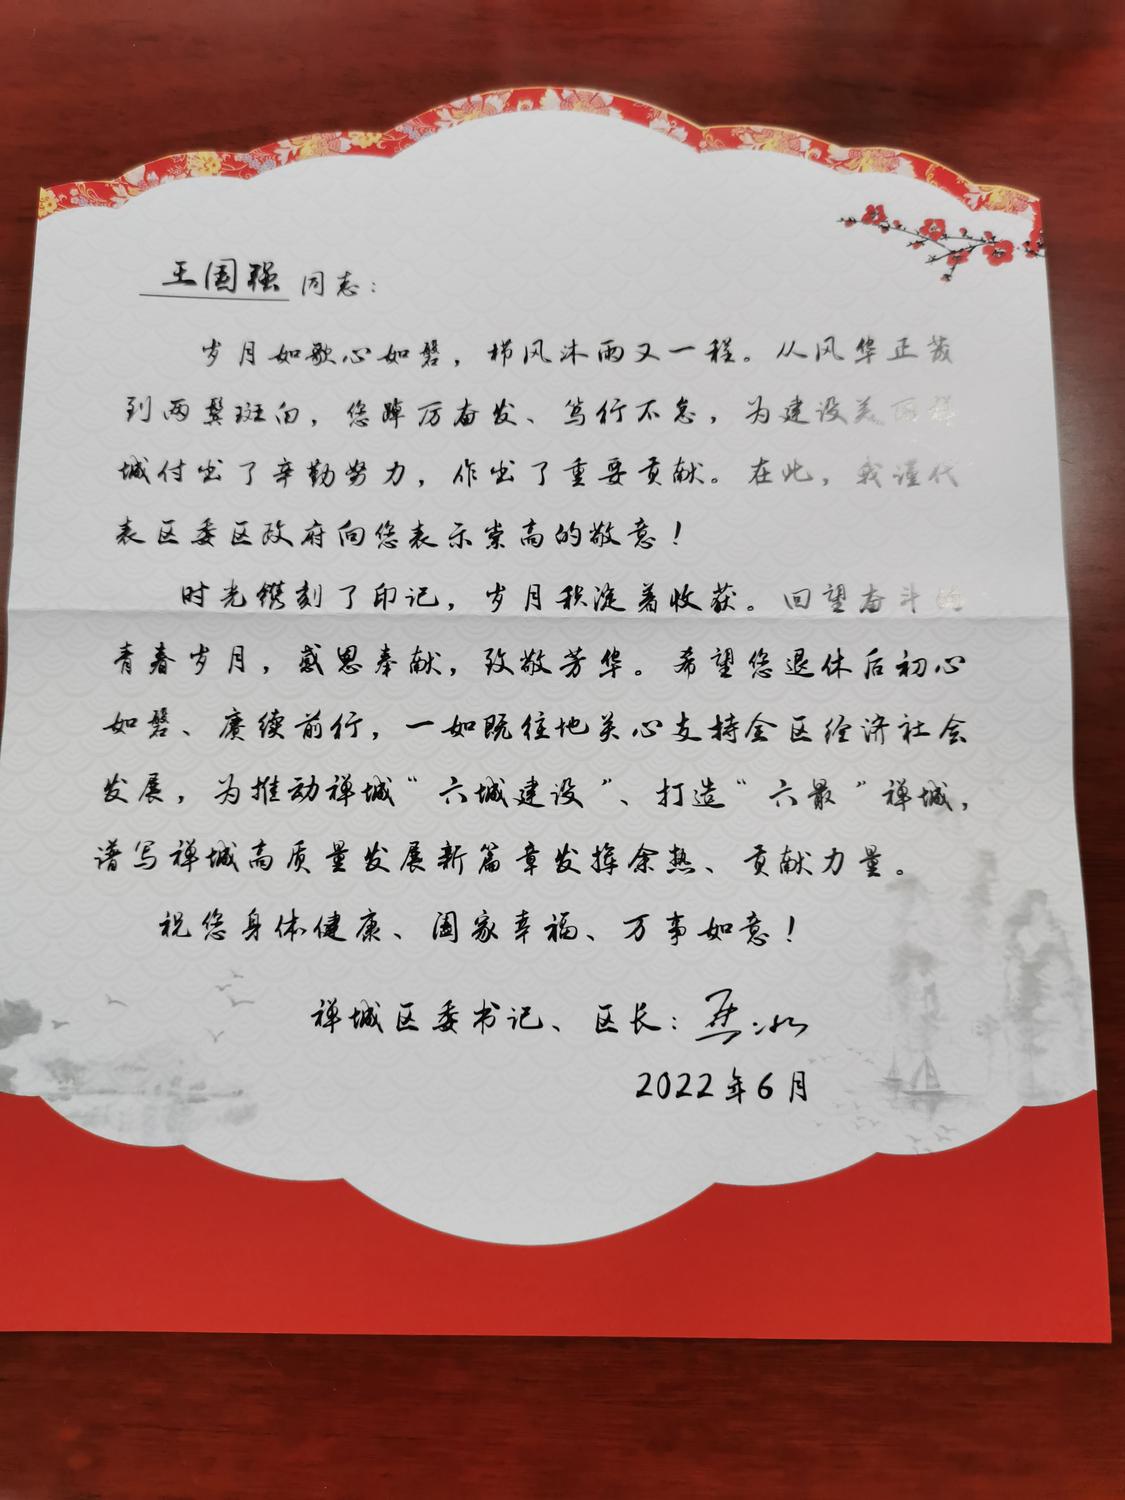 王国强同志：
岁月如歌心如磐，栉风沐雨又一程。从风华正茂
到两鬓斑白，您踔厉奋发、笃行不怠，为建设美丽禅
城付出了辛勤努力，作出了重要贡献。在此，我谨代
表区委区政府向您表示崇高的敬意！
时光镌刻了印记，岁月积淀着收获。回望奋斗的
青春岁月，感恩奉献，致敬芳华。希望您退休后初心
如磐、赓续前行，一如既往地关心支持全区经济社会
发展，为推动禅城“六城建设”、打造“六最”禅城，
谱写禅城高质量发展新篇章发挥余热、贡献力量。
祝您身体健康、阖家幸福、万事如意！
禅城区委书记、区长：
2022年6月